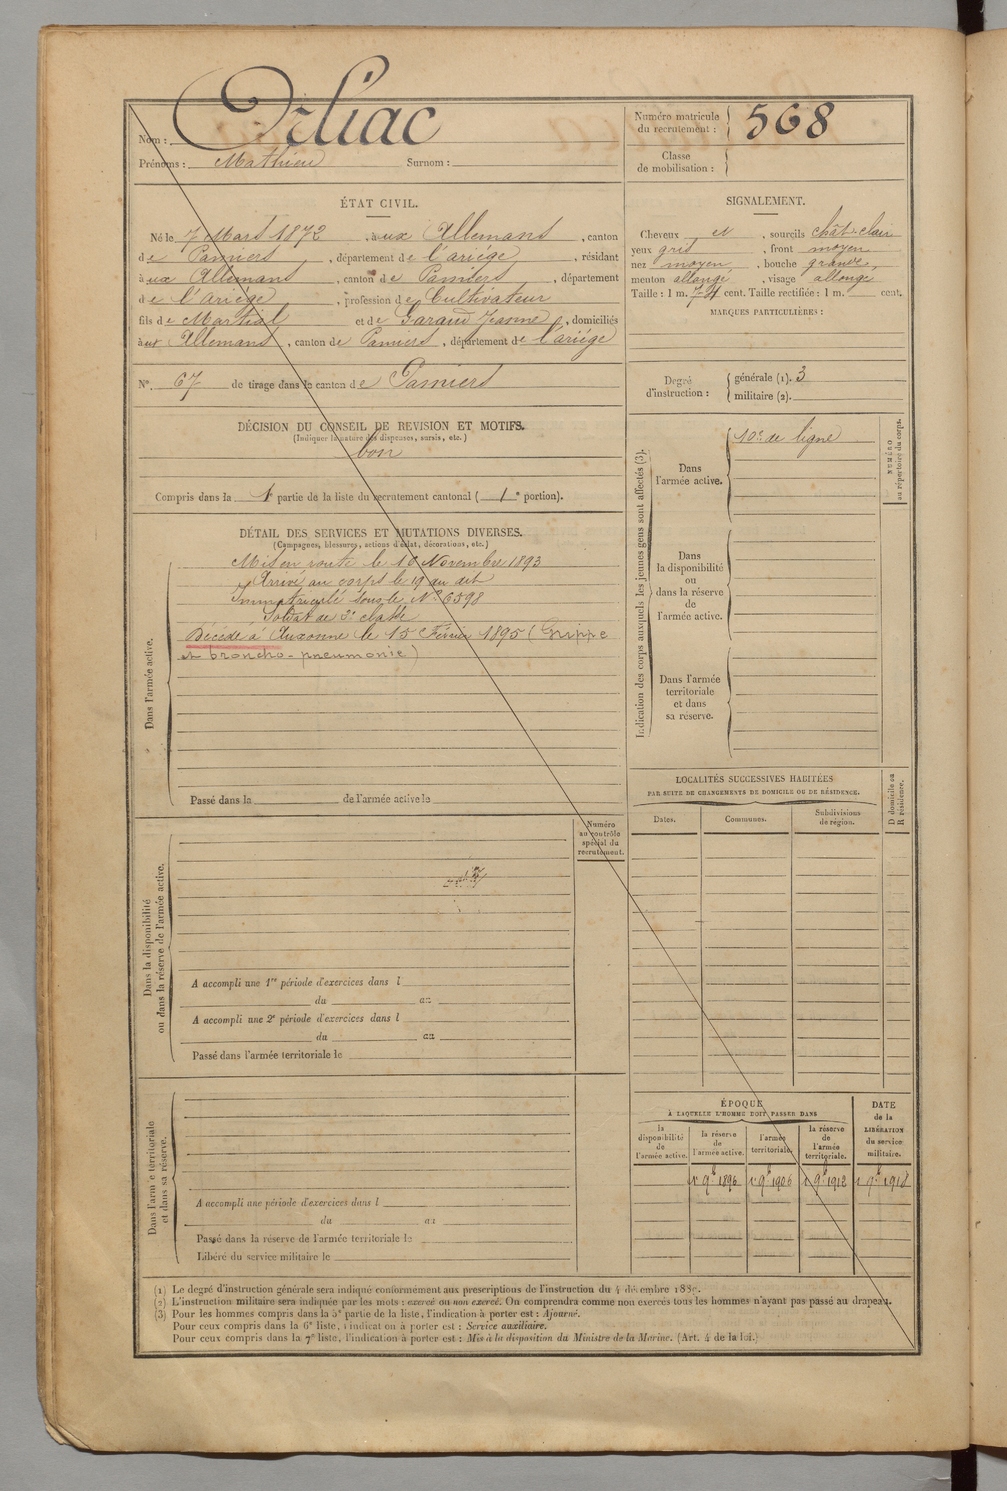 Nom : Orliac
Prénoms : Mathieu Surnom :
Numéro matricule
du recrutement : 568
Classe
de mobilisation :
ÉTAT CIVIL.
Né le 7 Mars 1872, à ux Allemans, canton
de Pamiers, département de l'ariége, résidant
à ux Allemans, canton de Pamiers, département
de l'ariége, profession de Cultivateur
fils de Martial et de Garaud Jeanne, domiciliés
à ux Allemans, canton de Pamiers, département de l'ariége
N°. 67 de tirage dans le canton de Pamiers
SIGNALEMENT.
Cheveux N, sourcils chât-clair
yeux gris, front moyen
nez moyen, bouche grande,
menton allongé, visage allongé
Taille : 1 m. 74 cent. Taille rectifiée : 1 m. cent.
MARQUES PARTICULIÈRES :
Degré
d'instruction :
générale (1). 3
militaire (2).
DÉCISION DU CONSEIL DE REVISION ET MOTIFS.
(Indiquer la nature des dispenses, sursis, etc.)
bon
Compris dans la 1e partie de la liste du recrutement cantonal ( 1e portion).
DÉTAIL DES SERVICES ET MUTATIONS DIVERSES.
(Campagnes, blessures, actions d'éclat, décorations, etc.)
Dans l'armée active.
Mis en route le 16 Novembre 1893
Arrivé au corps le 19 du dit
Immatriculé sous le N° 6598
Soldat de 2e classe
Décédé à Auxonne le 15 Février 1895 (Grippe
et broncho-pneumonie)
Passé dans la de l'armée active le
Indication des corps auxquels les jeunes gens sont affectés (3).
Dans
l'armée active.
10e de ligne
NUMÉRO
au répertoire du corps.
Dans
la disponibilité
ou
dans la réserve
de
l'armée active.
Dans l'armée
territoriale
et dans
sa réserve.
LOCALITÉS SUCCESSIVES HABITÉES
PAR SUITE DE CHANGEMENTS DE DOMICILE OU DE RÉSIDENCE.
D domicile ou
R résidence.
Dates.
Communes.
Subdivisions
de région.
Numéro
au contrôle
spécial du
recrutement.
Dans la disponibilité
ou dans la réserve de l'armée active.
A accompli une 1re période d'exercices dans l
du au
A accompli une 2e période d'exercices dans l
du au
Passé dans l'armée territoriale le
Dans l'armée territoriale
et dans sa réserve.
A accompli une période d'exercices dans l
du au
Passé dans la réserve de l'armée territoriale le
Libéré du service militaire le
ÉPOQUE
À LAQUELLE L'HOMME DOIT PASSER DANS
DATE
de la
LIBÉRATION
du service
militaire.
la
disponibilité
de
l'armée active.
la réserve
de
l'armée active.
l'armée
territoriale.
la réserve
de
l'armée
territoriale.
1 9b 1896 1 9b 1906 1 9b 1912 1 9b 1918
(1) Le degré d'instruction générale sera indiqué conformément aux prescriptions de l'instruction du 4 décembre 1889.
(2) L'instruction militaire sera indiquée par les mots : exercé ou non exercé. On comprendra comme non exercés tous les hommes n'ayant pas passé au drapeau.
(3) Pour les hommes compris dans la 5e partie de la liste, l'indication à porter est : Ajourné.
Pour ceux compris dans la 6e liste, l'indication à porter est : Service auxiliaire.
Pour ceux compris dans la 7e liste, l'indication à porter est : Mis à la disposition du Ministre de la Marine. (Art. 4 de la loi.)